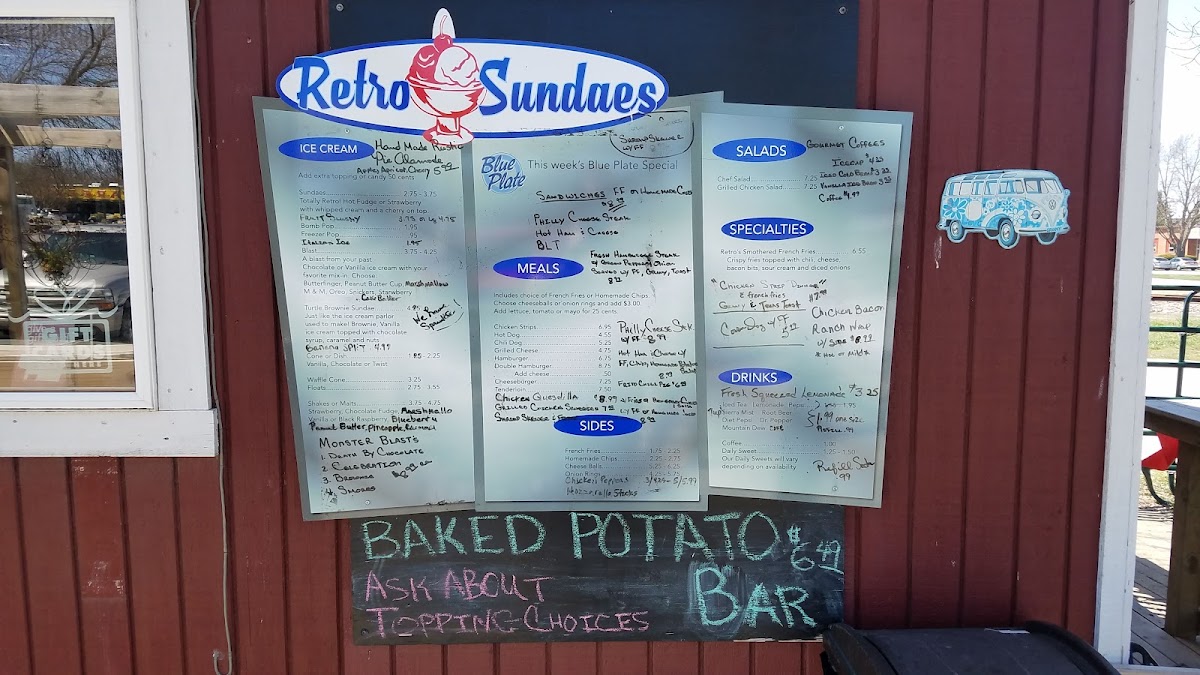 Retro Sundaes
ICE CREAM
Hand Made Rustic
Pie Alamode
Apple, Apricot, Cherry 5
Add extra topping or candy 50 cents
Sundaes 2.75 - 3.75
Totally Retro! Hot Fudge or Strawberry
with whipped cream and a cherry on top
Fruit Slushy
Bomb Pop 1.95
Freezer Pop .95
Italian Ice 1.95
Blast 3.75 - 4.25
A blast from your past.
Chocolate or Vanilla ice cream with your
favorite mix-in. Choose
Butterfinger, Peanut Butter Cup, Marshmallow
M & M, Oreo, Snickers, Strawberry
Cake Batter
Turtle Brownie Sundae
Just like the ice cream parlor
used to make! Brownie, Vanilla
ice cream topped with chocolate
syrup, caramel and nuts
Banana Split 4.95
Cone or Dish 1.85 - 2.25
Vanilla, Chocolate or Twist
Waffle Cone 3.25
Floats 2.75 - 3.55
Shakes or Malts 3.75 - 4.75
Strawberry, Chocolate Fudge, Marshmallo
Vanilla or Black Raspberry, Blueberry
Peanut Butter, Pineapple,
Monster Blasts
1. Death By Chocolate
2. Celebration
3. Brownie
4. Smores
Blue Plate
This week's Blue Plate Special
Sandwiches FF or Homemade Chips
Philly Cheese Steak
Hot Ham & Cheese
BLT
Fresh Hamburger Steak
w/ Green Peppers, Onion
Served w/ FF, Gravy, Toast
MEALS
Includes choice of French Fries or Homemade Chips
Choose cheeseballs or onion rings and add $3.00
Add lettuce, tomato or mayo for 25 cents
Chicken Strips 6.95
Hot Dog 4.50
Chili Dog 5.25
Grilled Cheese 4.75
Hamburger 6.75
Double Hamburger 8.75
Add cheese .50
Cheeseburger 7.25
Tenderloin 7.50
Chicken Quesadilla $8.99
Grilled Chicken Sandwich
Philly Cheese Stk.
w/ FF 8.99
Hot Ham & Cheese w/
FF, Chips, Homemade
8.99
Frito Chili Pie
SIDES
French Fries 1.75 - 2.25
Homemade Chips 2.25 - 2.75
Cheese Balls 5.25 - 6.25
Onion Rings
Chicken Poppers
Mozzarella Sticks
SALADS
Chef Salad 7.25
Grilled Chicken Salad 7.25
Gourmet Coffees
Iced Cold Brew
Vanilla Iced Brew
Coffee
SPECIALTIES
Retro's Smothered French Fries 6.55
Crispy fries topped with chili, cheese,
bacon bits, sour cream and diced onions
"Chicken Strip Dinner"
& french fries
Gravy & Texas Toast
Corn Dog w/ FF
Chicken Bacon
Ranch Wrap
w/ Side $8.99
* Hot or Mild *
DRINKS
Fresh Squeezed Lemonade $3.25
Iced Tea Lemonade Pepsi
Sierra Mist Root Beer
Diet Pepsi Dr. Pepper
Mountain Dew
$1.99 one size
Refill .99
Coffee 1.00
Daily Sweet 1.25 - 1.50
Our Daily Sweets will vary
depending on availability
BAKED POTATO $6.49
BAR
ASK ABOUT
TOPPING CHOICES